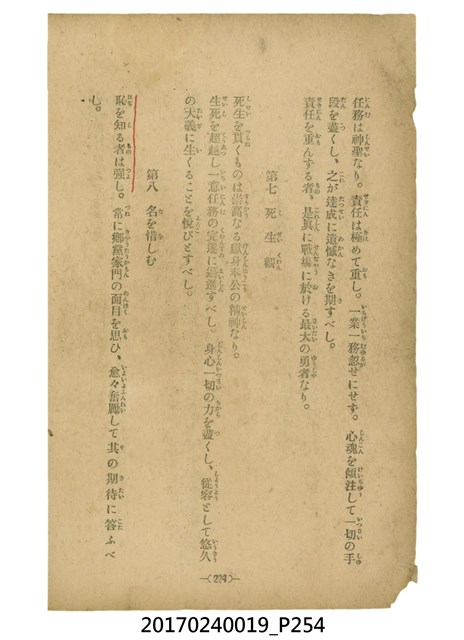 任務は神聖なり。責任は極めて重し。一業一務忽せにせず、心魂を傾注して一切の手
段を盡くし、之が達成に遺憾なきを期すべし。
責任を重んずる者、是眞に戰場に於ける最大の勇者なり。
第七 死生觀
死生を貫くものは崇高なる獻身奉公の精神なり。
生死を超越し一意任務の完遂に邁進すべし。身心一切の力を盡くし、從容として悠久
の大義に生くることを悅びとすべし。
第八 名を惜しむ
恥を知る者は强し。常に鄕黨家門の面目を思ひ、愈々奮勵して其の期待に答ふべ
し。
—(224)—
20170240019_P254